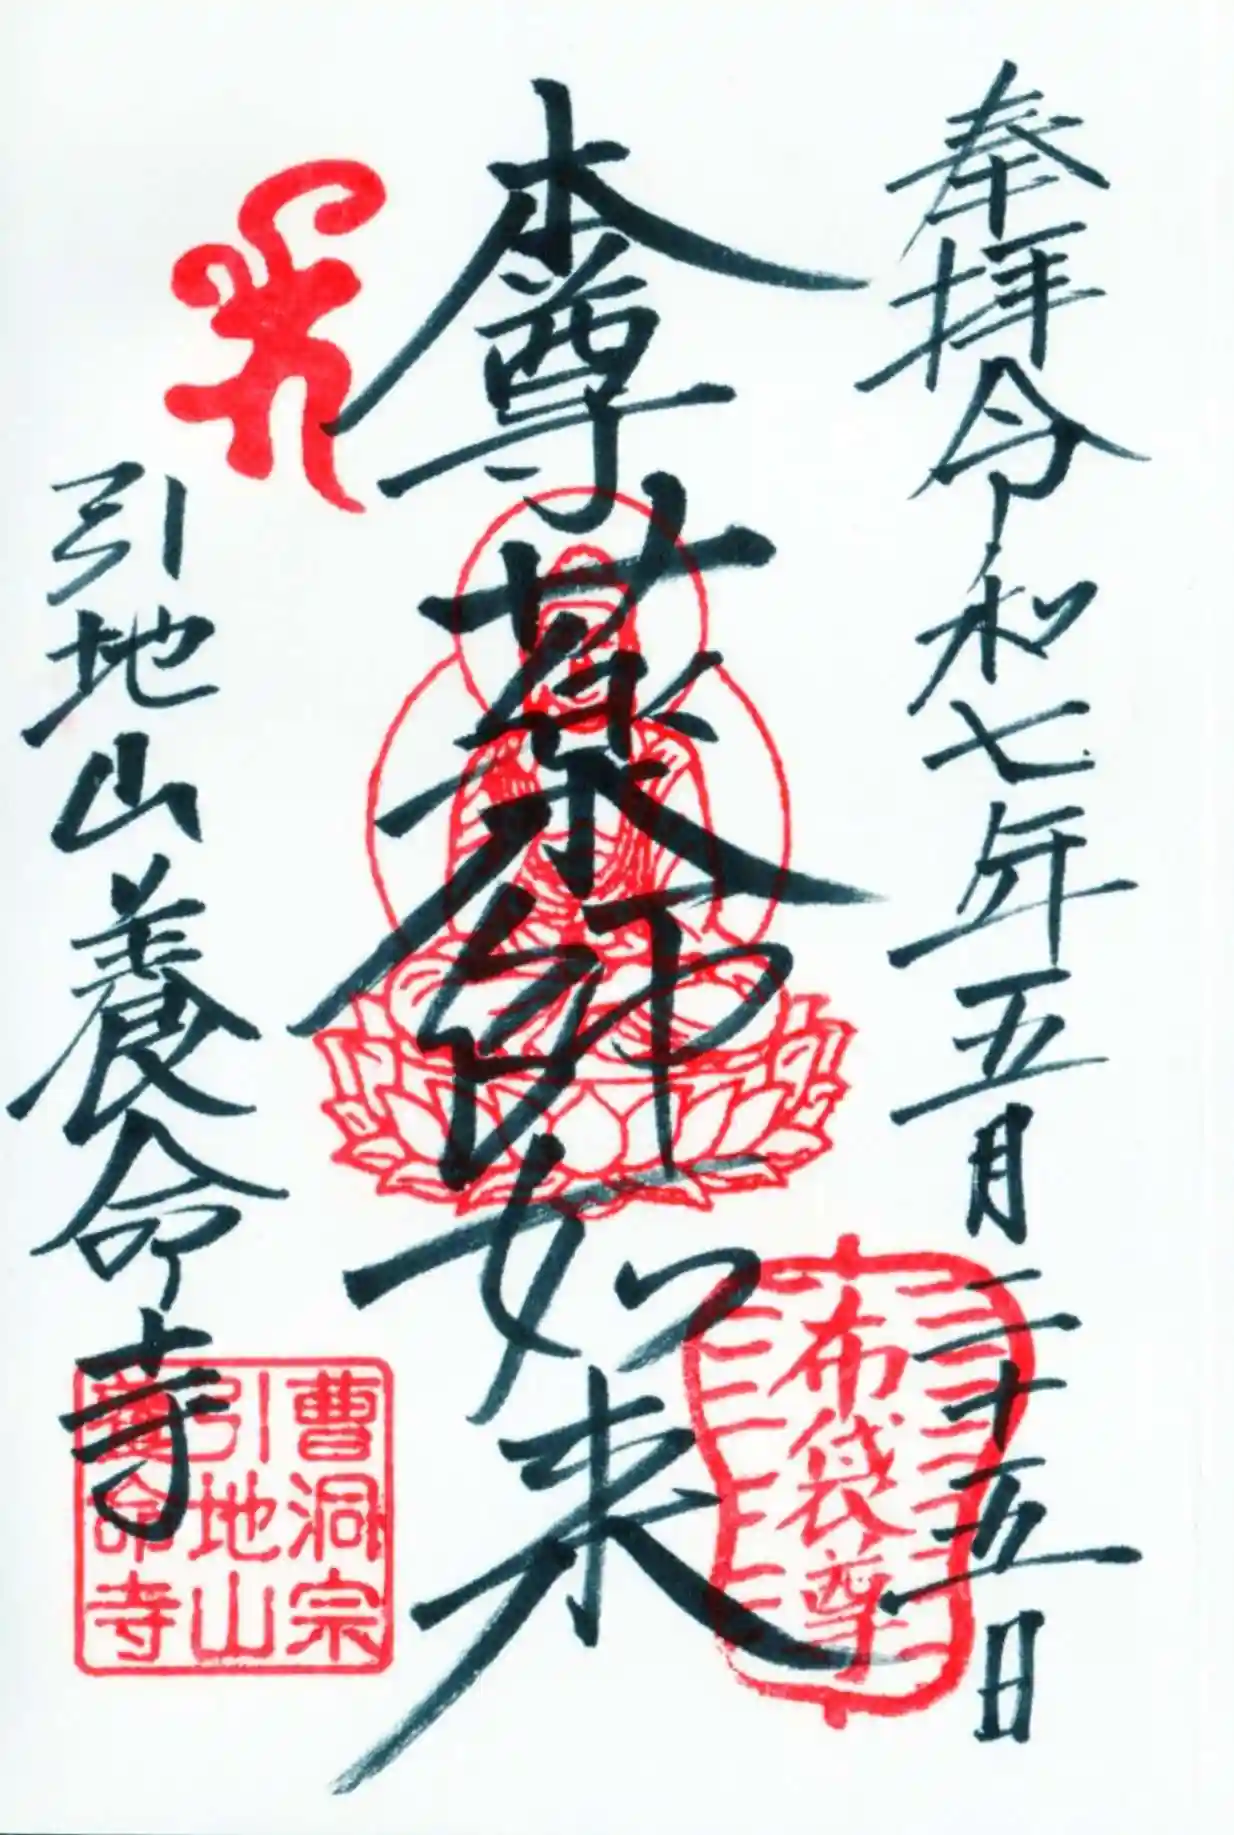 奉拝令和七年五月二十五日
布袋尊
本尊薬師如来
引地山養命寺
曹洞宗
引地山
養命寺